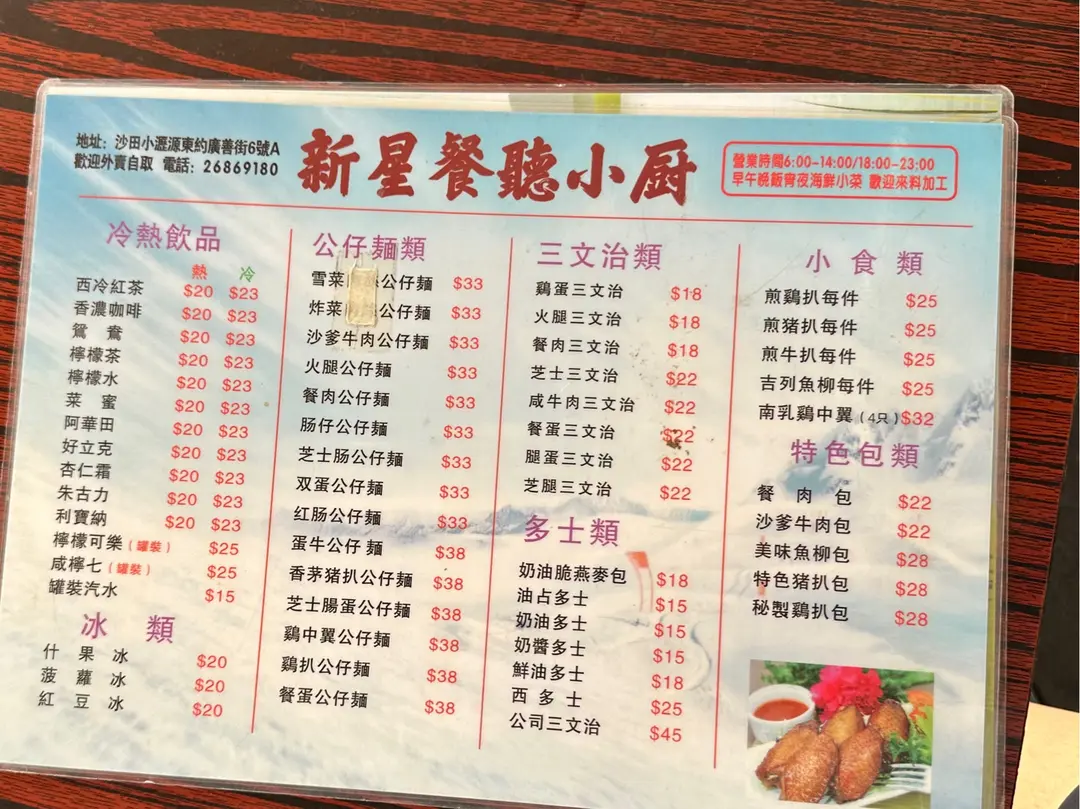 地址：沙田小瀝源東約廣善街6號A
歡迎外賣自取 電話：26869180
新星餐聽小厨
營業時間6:00-14:00/18:00-23:00
早午晚飯宵夜海鮮小菜 歡迎來料加工
冷熱飲品
熱 冷
西冷紅茶 $20 $23
香濃咖啡 $20 $23
鴛鴦 $20 $23
檸檬茶 $20 $23
檸檬水 $20 $23
菜蜜 $20 $23
阿華田 $20 $23
好立克 $20 $23
杏仁霜 $20 $23
朱古力 $20 $23
利寶納 $20 $23
檸檬可樂（罐裝） $25
咸檸七（罐裝） $25
罐裝汽水 $15
冰類
什果冰 $20
菠蘿冰 $20
紅豆冰 $20
公仔麵類
雪菜 公仔麵 $33
炸菜 公仔麵 $33
沙爹牛肉公仔麵 $33
火腿公仔麵 $33
餐肉公仔麵 $33
肠仔公仔麵 $33
芝士肠公仔麵 $33
双蛋公仔麵 $33
红肠公仔麵 $33
蛋牛公仔麵 $38
香茅猪扒公仔麵 $38
芝士腸蛋公仔麵 $38
鷄中翼公仔麵 $38
鷄扒公仔麵 $38
餐蛋公仔麵 $38
三文治類
鷄蛋三文治 $18
火腿三文治 $18
餐肉三文治 $18
芝士三文治 $22
咸牛肉三文治 $22
餐蛋三文治 $22
腿蛋三文治 $22
芝腿三文治 $22
多士類
奶油脆燕麥包 $18
油占多士 $15
奶油多士 $15
奶醬多士 $15
鮮油多士 $18
西多士 $25
公司三文治 $45
小食類
煎鷄扒每件 $25
煎猪扒每件 $25
煎牛扒每件 $25
吉列魚柳每件 $25
南乳鷄中翼（4只） $32
特色包類
餐肉包 $22
沙爹牛肉包 $22
美味魚柳包 $28
特色猪扒包 $28
秘製鷄扒包 $28